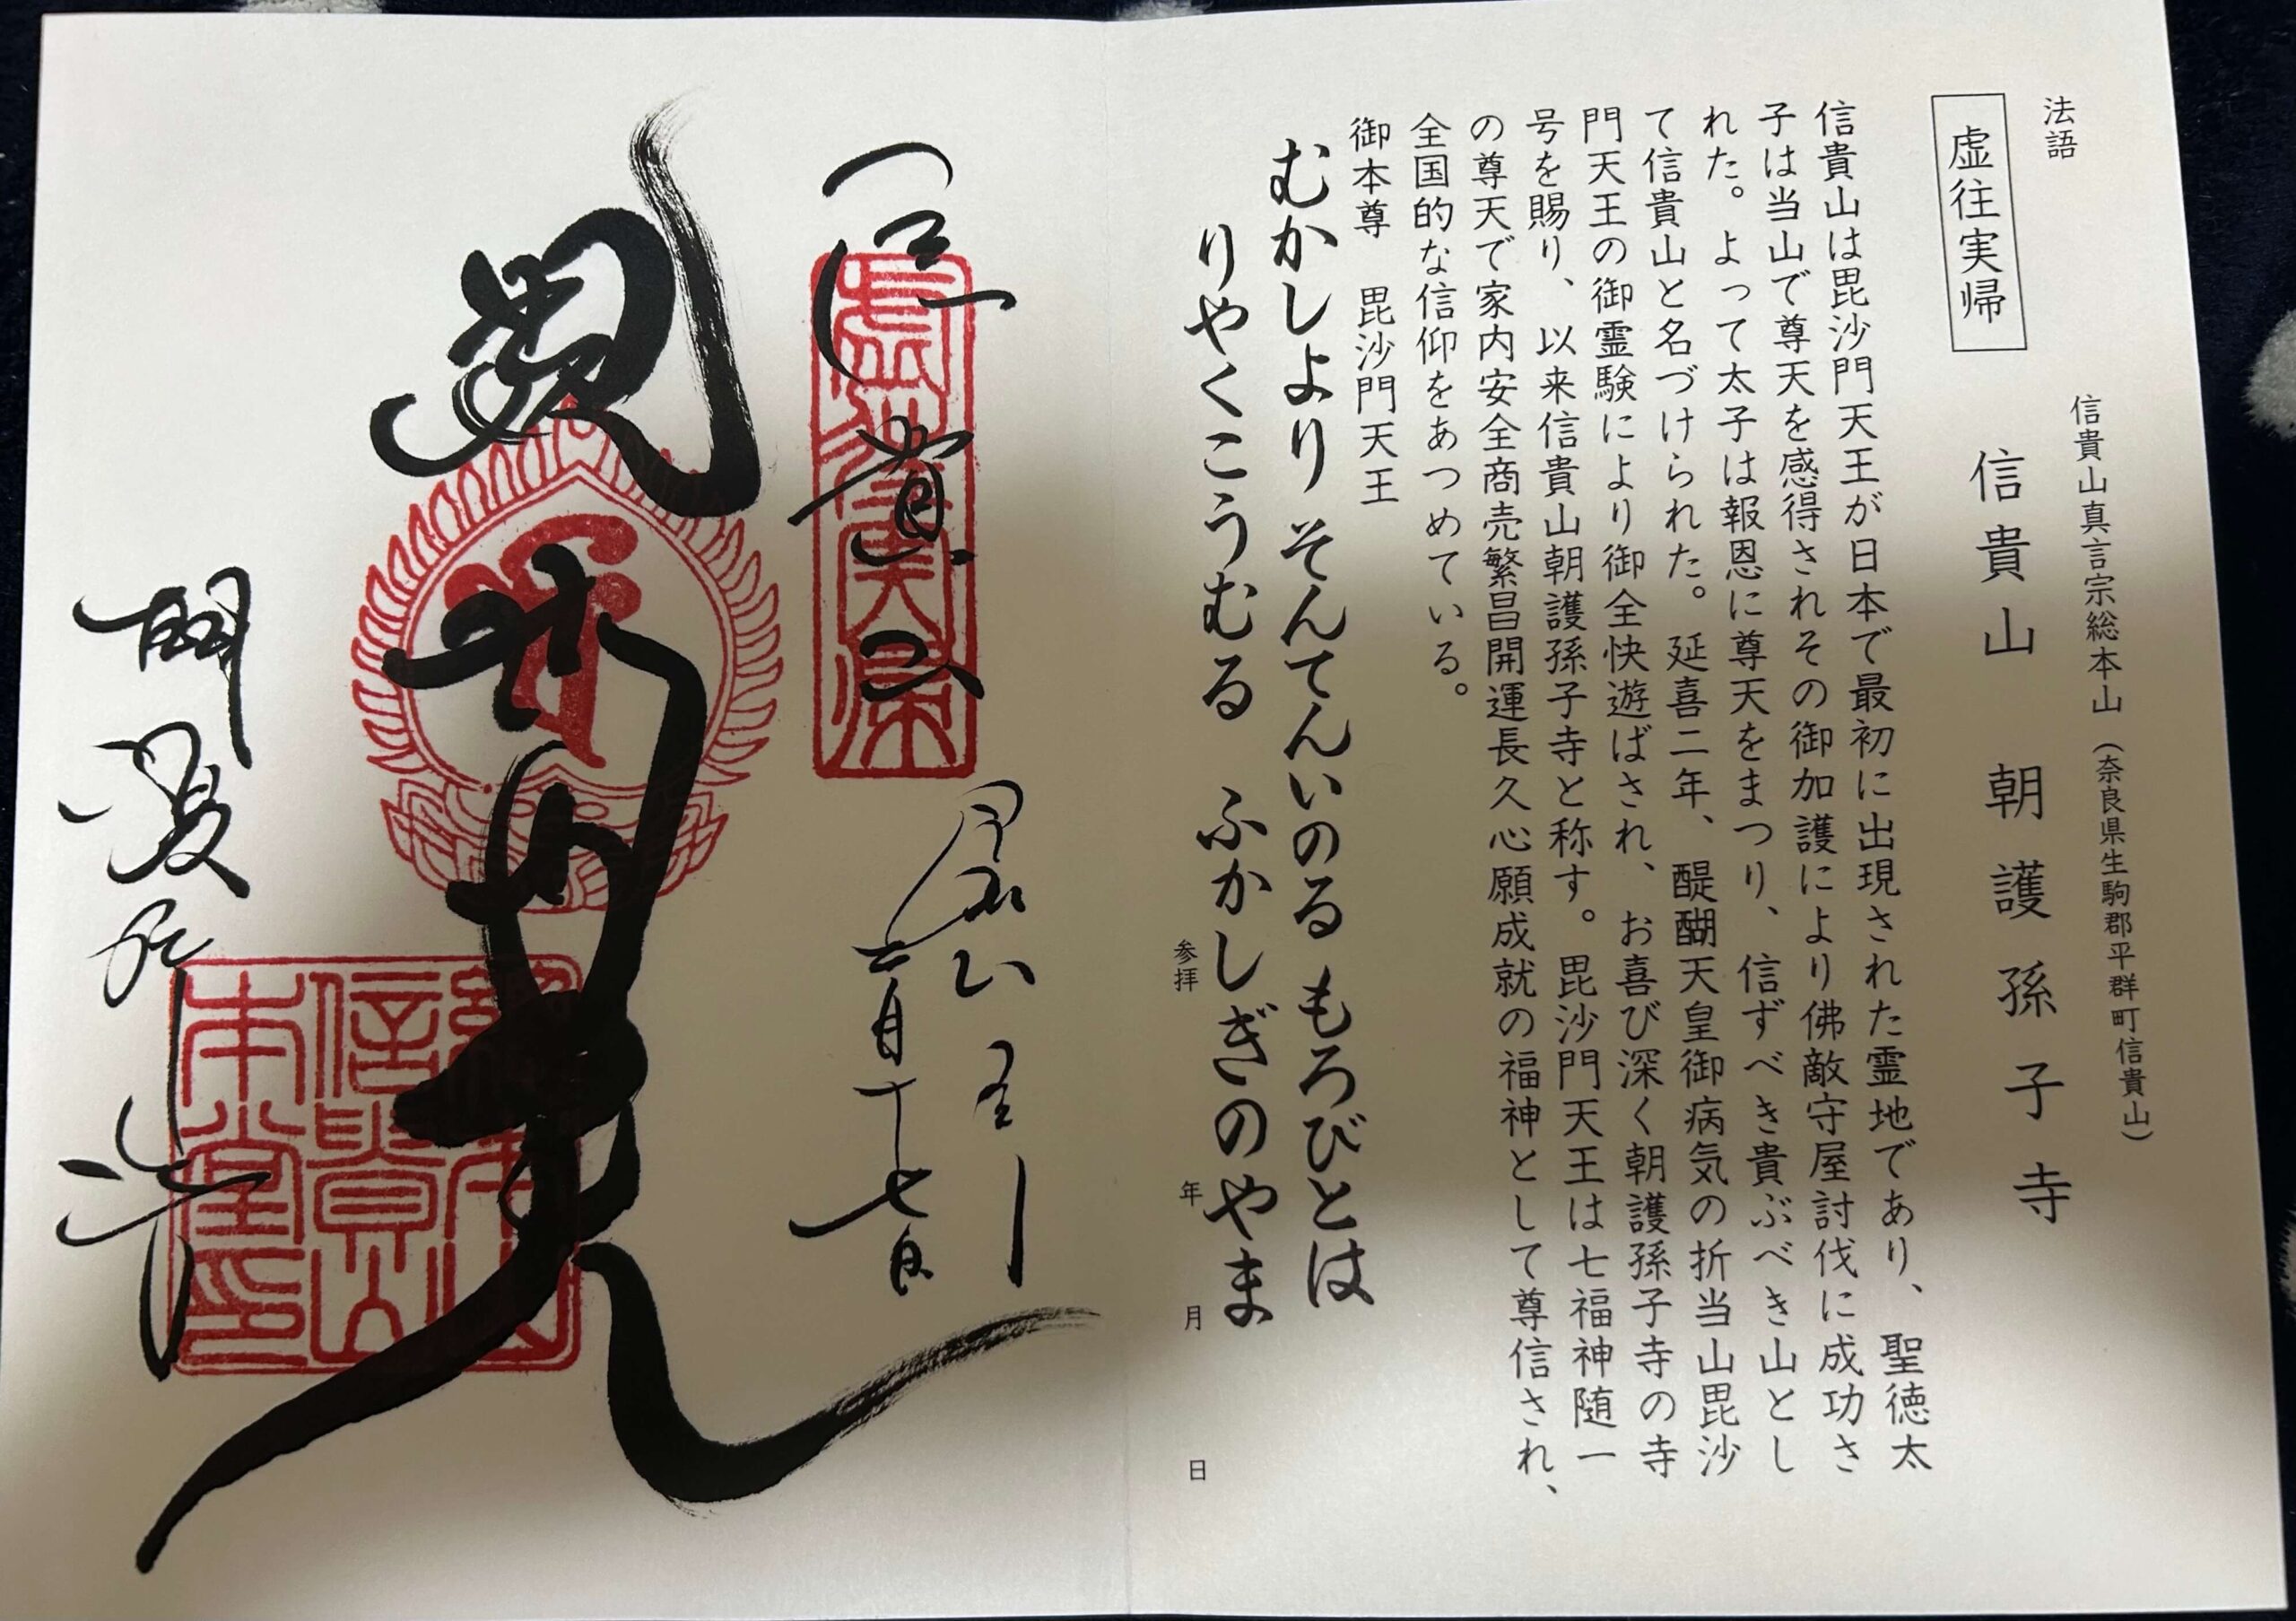 法語
虚往実帰
信貴山真言宗総本山（奈良県生駒郡平群町信貴山）
信貴山　朝護孫子寺
信貴山は毘沙門天王が日本で最初に出現された霊地であり、聖徳太
子は当山で尊天を感得されその御加護により佛敵守屋討伐に成功さ
れた。よって太子は報恩に尊天をまつり、信ずべき貴ぶべき山とし
て信貴山と名づけられた。延喜二年、醍醐天皇御病気の折当山毘沙
門天王の御霊験により御全快遊ばされ、お喜び深く朝護孫子寺の寺
号を賜り、以来信貴山朝護孫子寺と称す。毘沙門天王は七福神随一
の尊天で家内安全商売繁昌開運長久心願成就の福神として尊信され、
全国的な信仰をあつめている。
御本尊　毘沙門天王
むかしより そんてんいのる もろびとは
りやくこうむる ふかしぎのやま
参拝　年　月　日
二月十七日
信貴山
虚往実帰
毘沙門天
朝護孫子寺
信貴山
本堂印